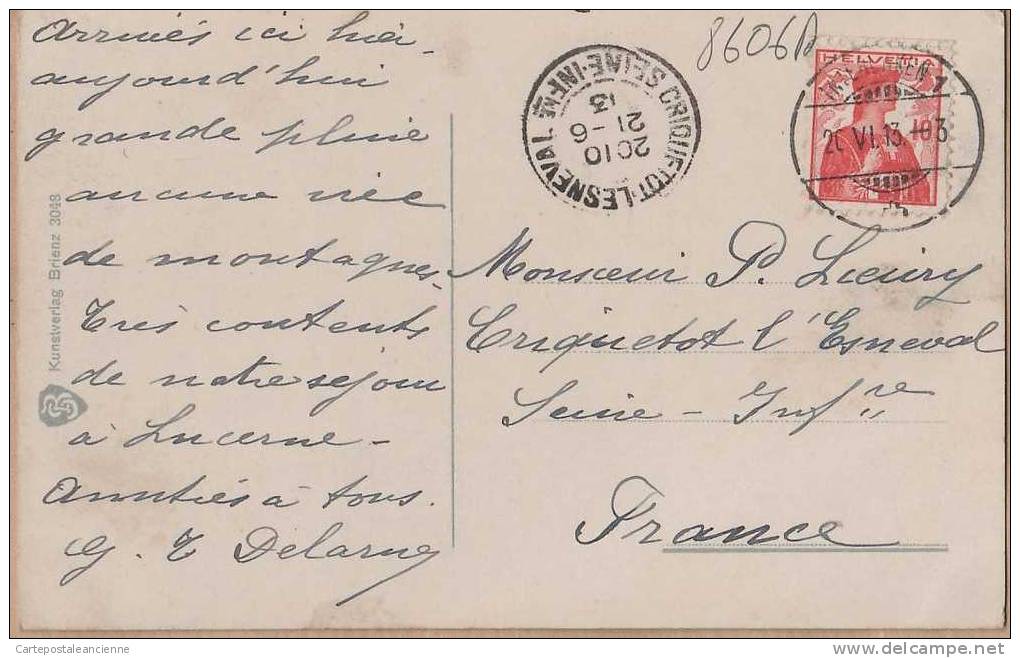 Arrivés ici hier
aujourd'hui
grande pluie
aucune vue
de montagnes.
Très contents
de notre séjour
à Lucerne -
Amitiés à tous.
G. T Delarue
Kunstverlag Brienz 3048
86061A
CRIQUETOT-LESNEVAL
SEINE-INFRE
2010
21-6
13
HELVETIA
10
VI.13.
Monsieur P. Lieury
Criquetot l'Esneval
Seine - Infre
France
Cartepostaleancienne
www.delcampe.net